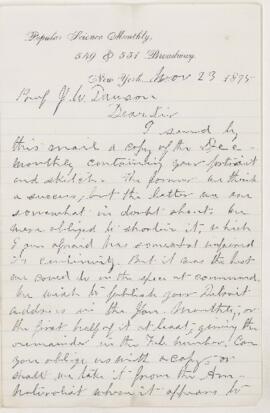 Popular Science Monthly,
549 & 551 Broadway,
New York, Nov 23 1875
Prof J. W. Dawson
Dear Sir
I send by
this mail a copy of the Dec
monthly containing your portrait
and sketch. The former we think
a success, but the latter we are
somewhat in doubt about. We
were obliged to shorten it, which
I am afraid has somewhat impaired
its continuity. But it was the best
we could do in the space at command.
We wish to publish your Detroit
address in the Jan. Monthly, or
the first half of it at least, giving the
remainder in the Feb. number. Can
you oblige us with a copy or
shall we take it from the Am
Naturalist when it appears